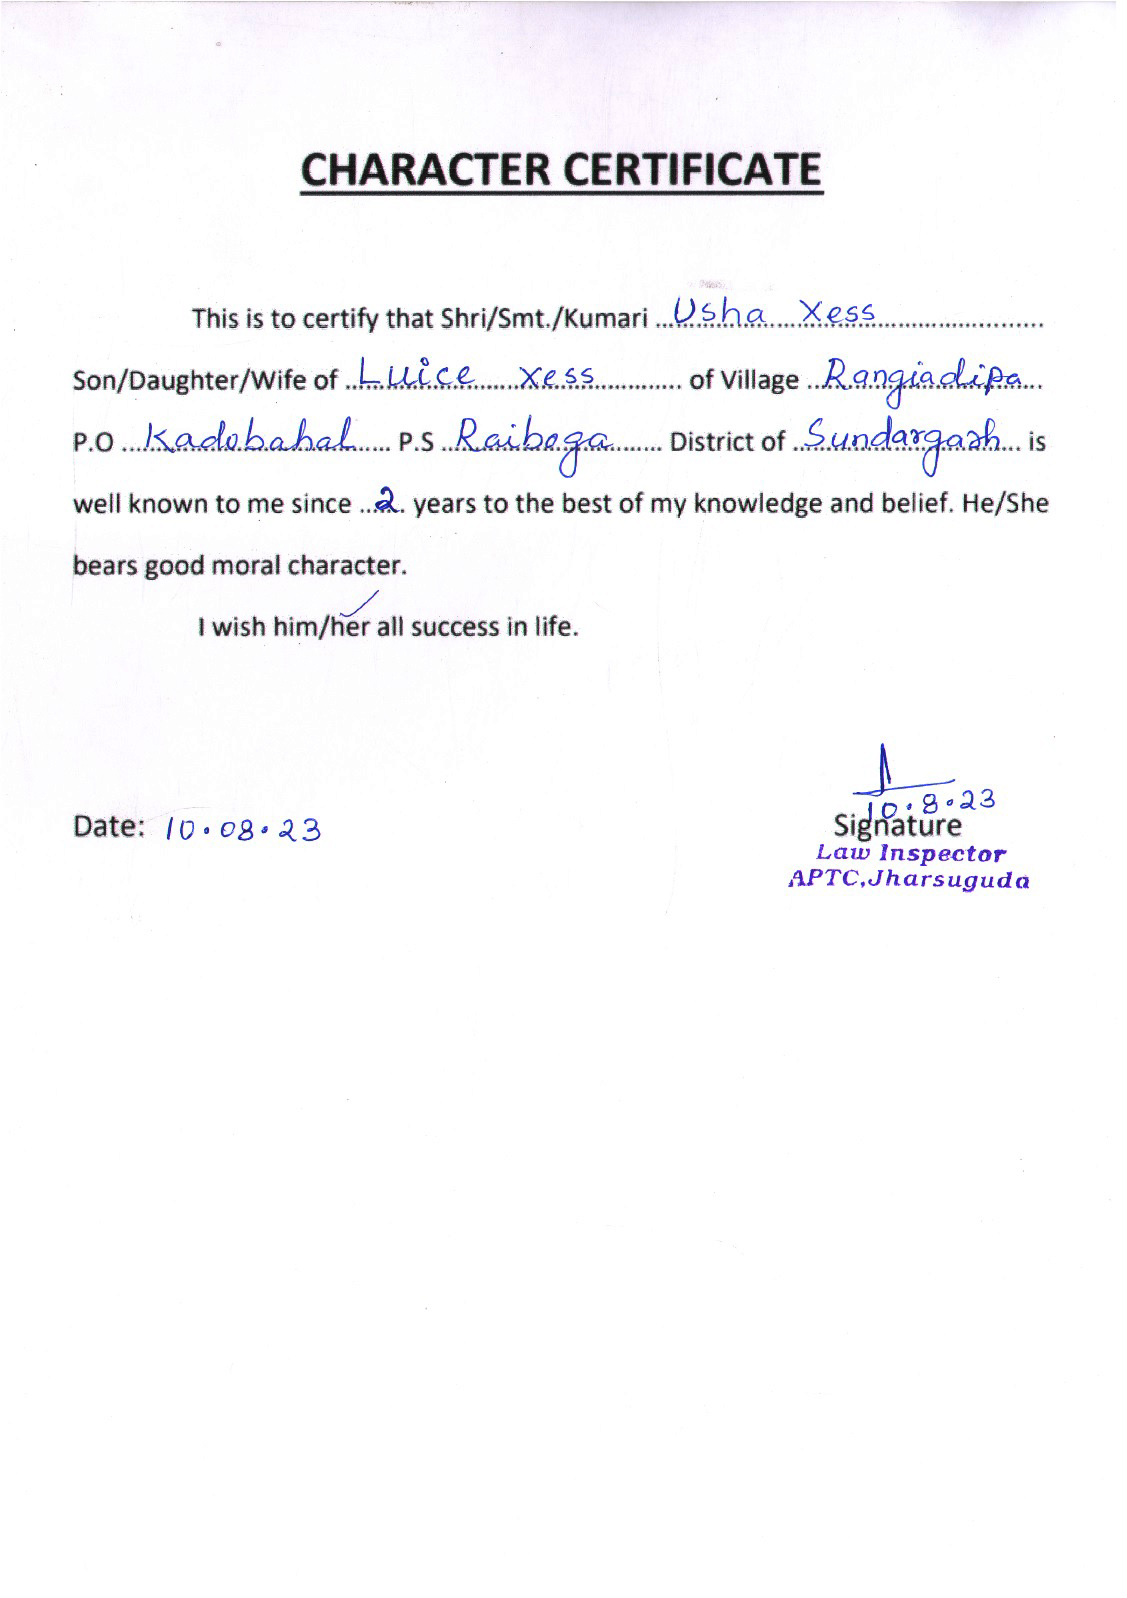 CHARACTER CERTIFICATE
This is to certify that Shri/Smt./Kumari ...Usha Xess...
Son/Daughter/Wife of ...Luice Xess... of Village ...Rangiadipa...
P.O ...Kadobahal... P.S ...Raiboga... District of ...Sundargarh... is
well known to me since ...2... years to the best of my knowledge and belief. He/She
bears good moral character.
I wish him/her all success in life.
10.8.23
Date: 10.08.23 Signature
Law Inspector
APTC,Jharsuguda